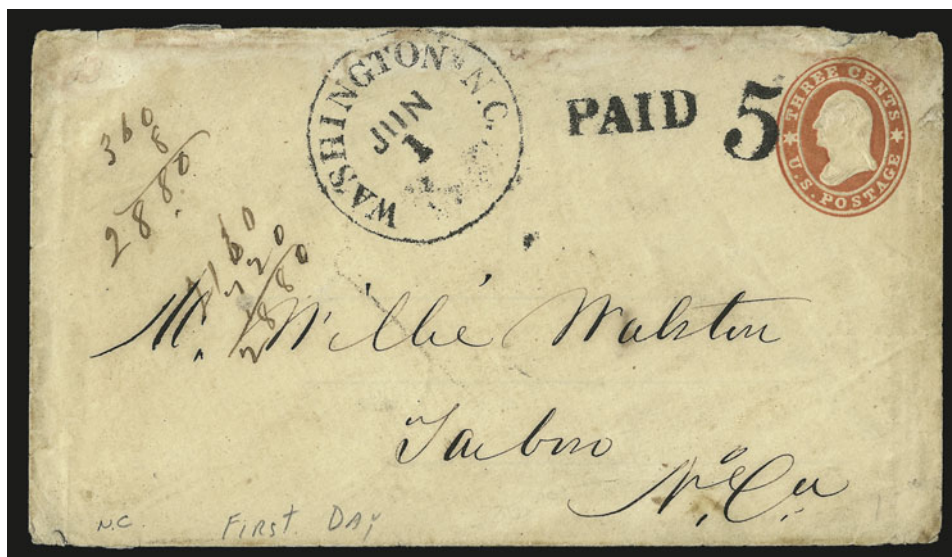 WASHINGTON N.C.
JUN
1
PAID 5
THREE CENTS
U.S. POSTAGE
360
8
2880
160
2880
Mr. Willie Walston
Tarboro
No. Ca.
N.C. FIRST DAY